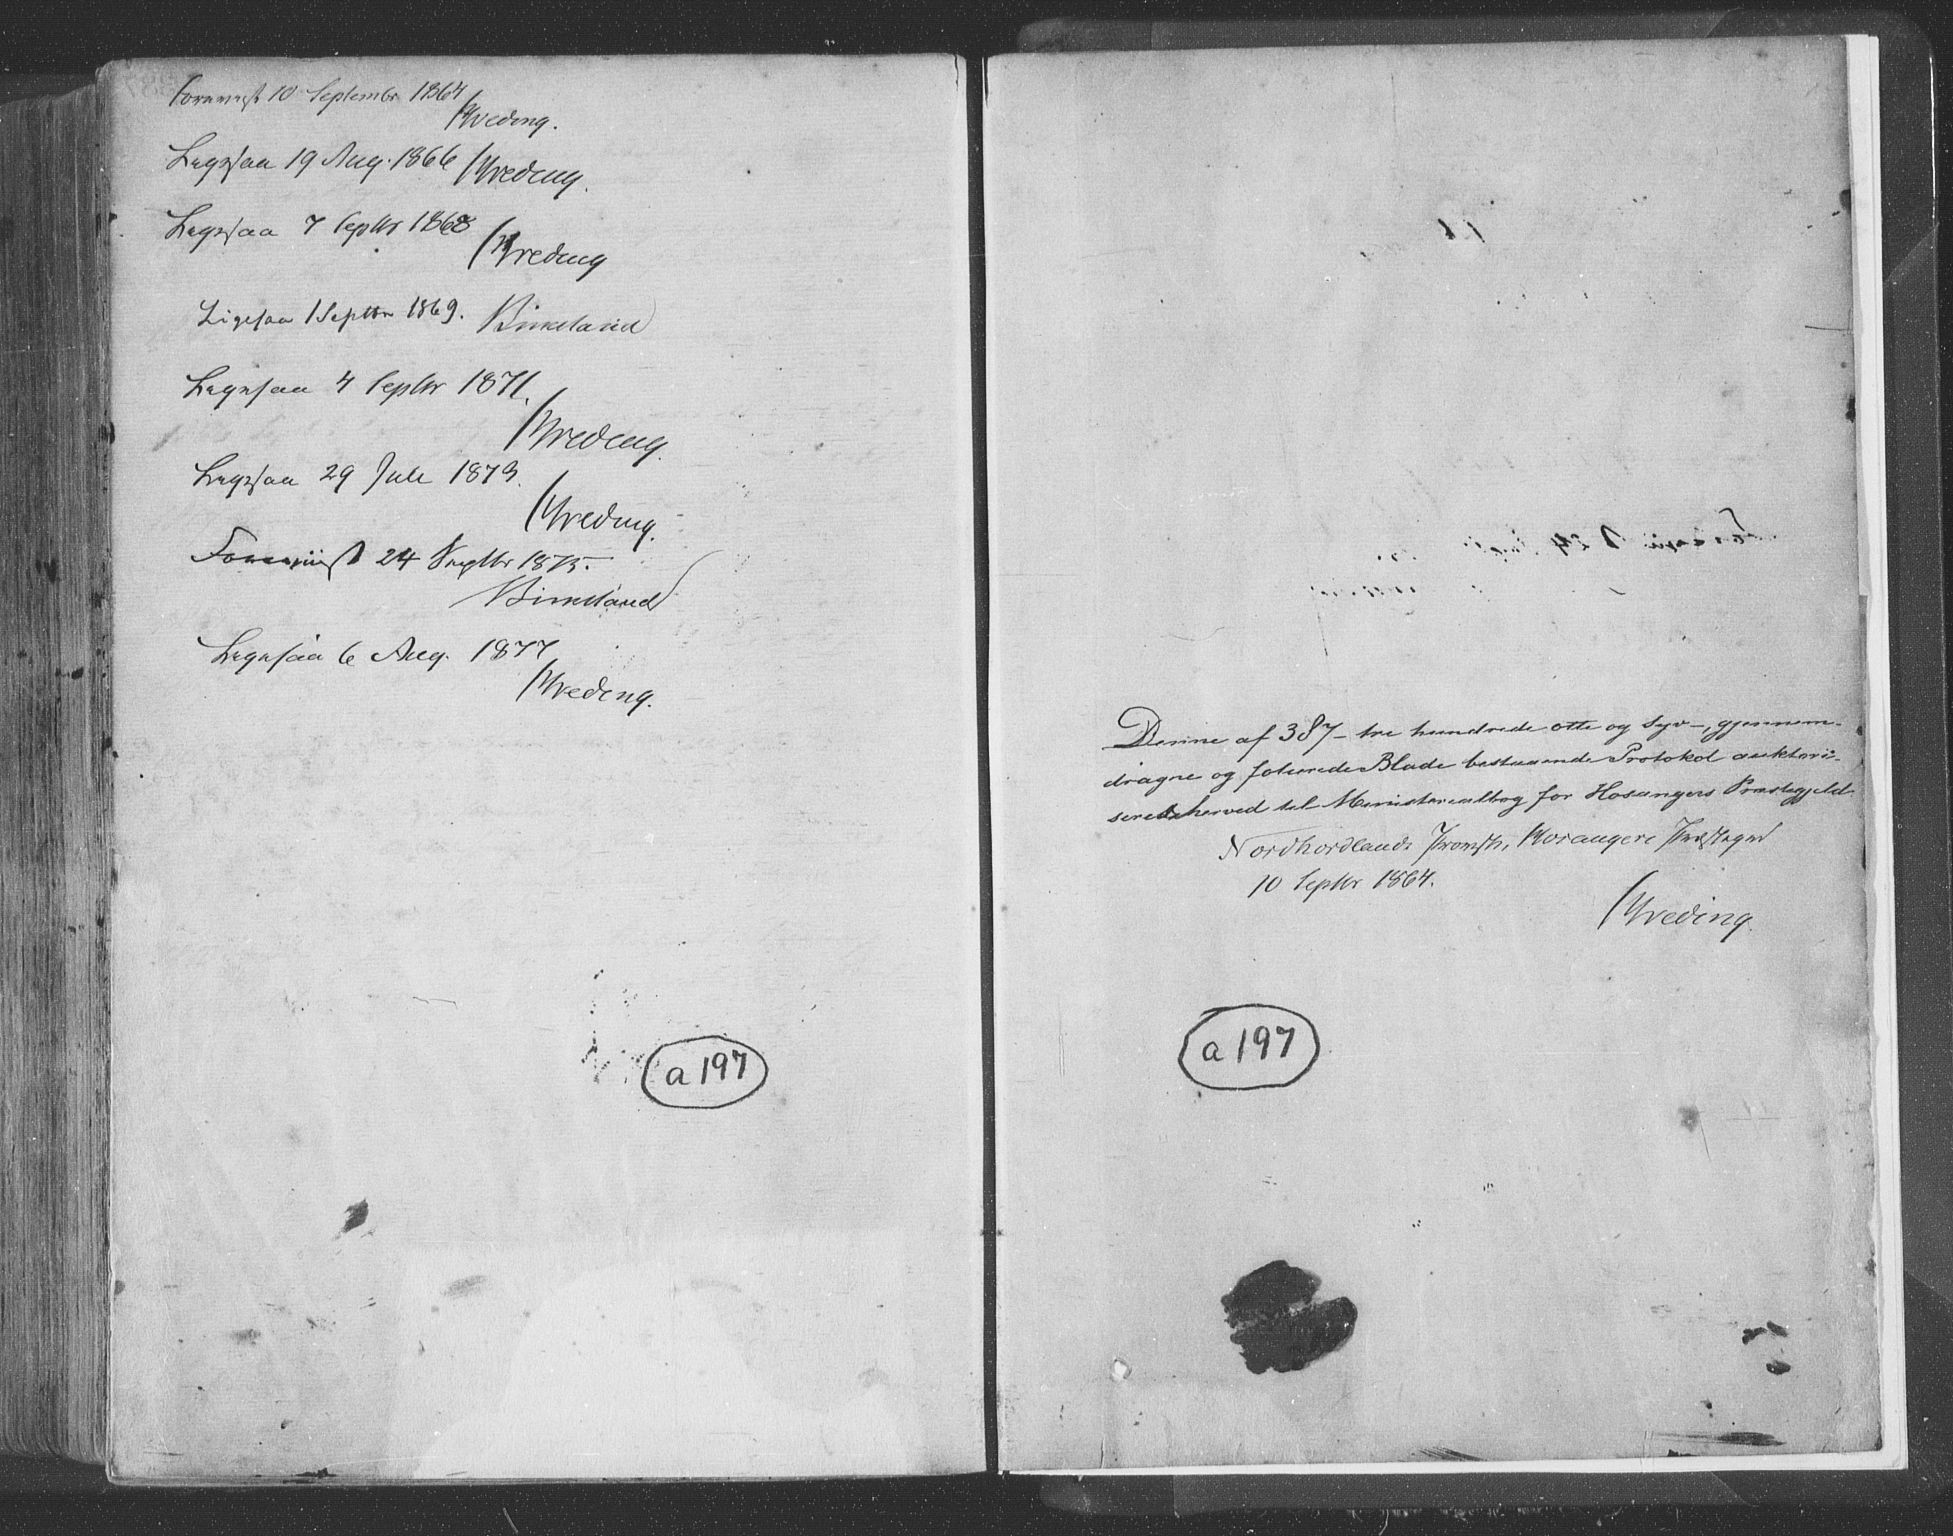 Forevist 10 September 1864
Wreding.
Ligesaa 19 Aug. 1866 Wreding.
Ligesaa 7 Septbr 1868
Wreding
Ligesaa 1 Septbr 1869. Birkeland
Ligesaa 4 Septbr 1871.
Wreding.
Ligesaa 29 Juli 1873.
Wreding.
Foreviist 24 Septbr 1875.
Birkeland
Ligesaa 6 Aug. 1877
Wreding.
a 197
Denne af 387 - tre hundrede otte og syv -, gjennem-
dragne og folierede Blade bestaaende Protokol auktori-
seres herved til Ministerialbog for Hosangers Præstegjeld.
Nordhordlands Provsti, Hosangers Præstegrd
10 Septbr 1864.
Wreding.
a 197